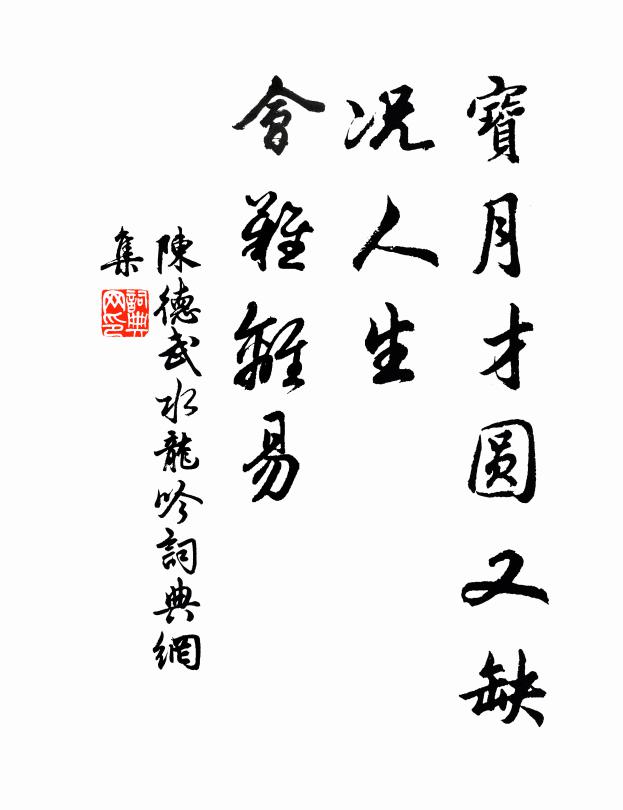 寶月才圓又缺
况人生
會難離易
陳德武水龍吟詞典網
集
詞典網印